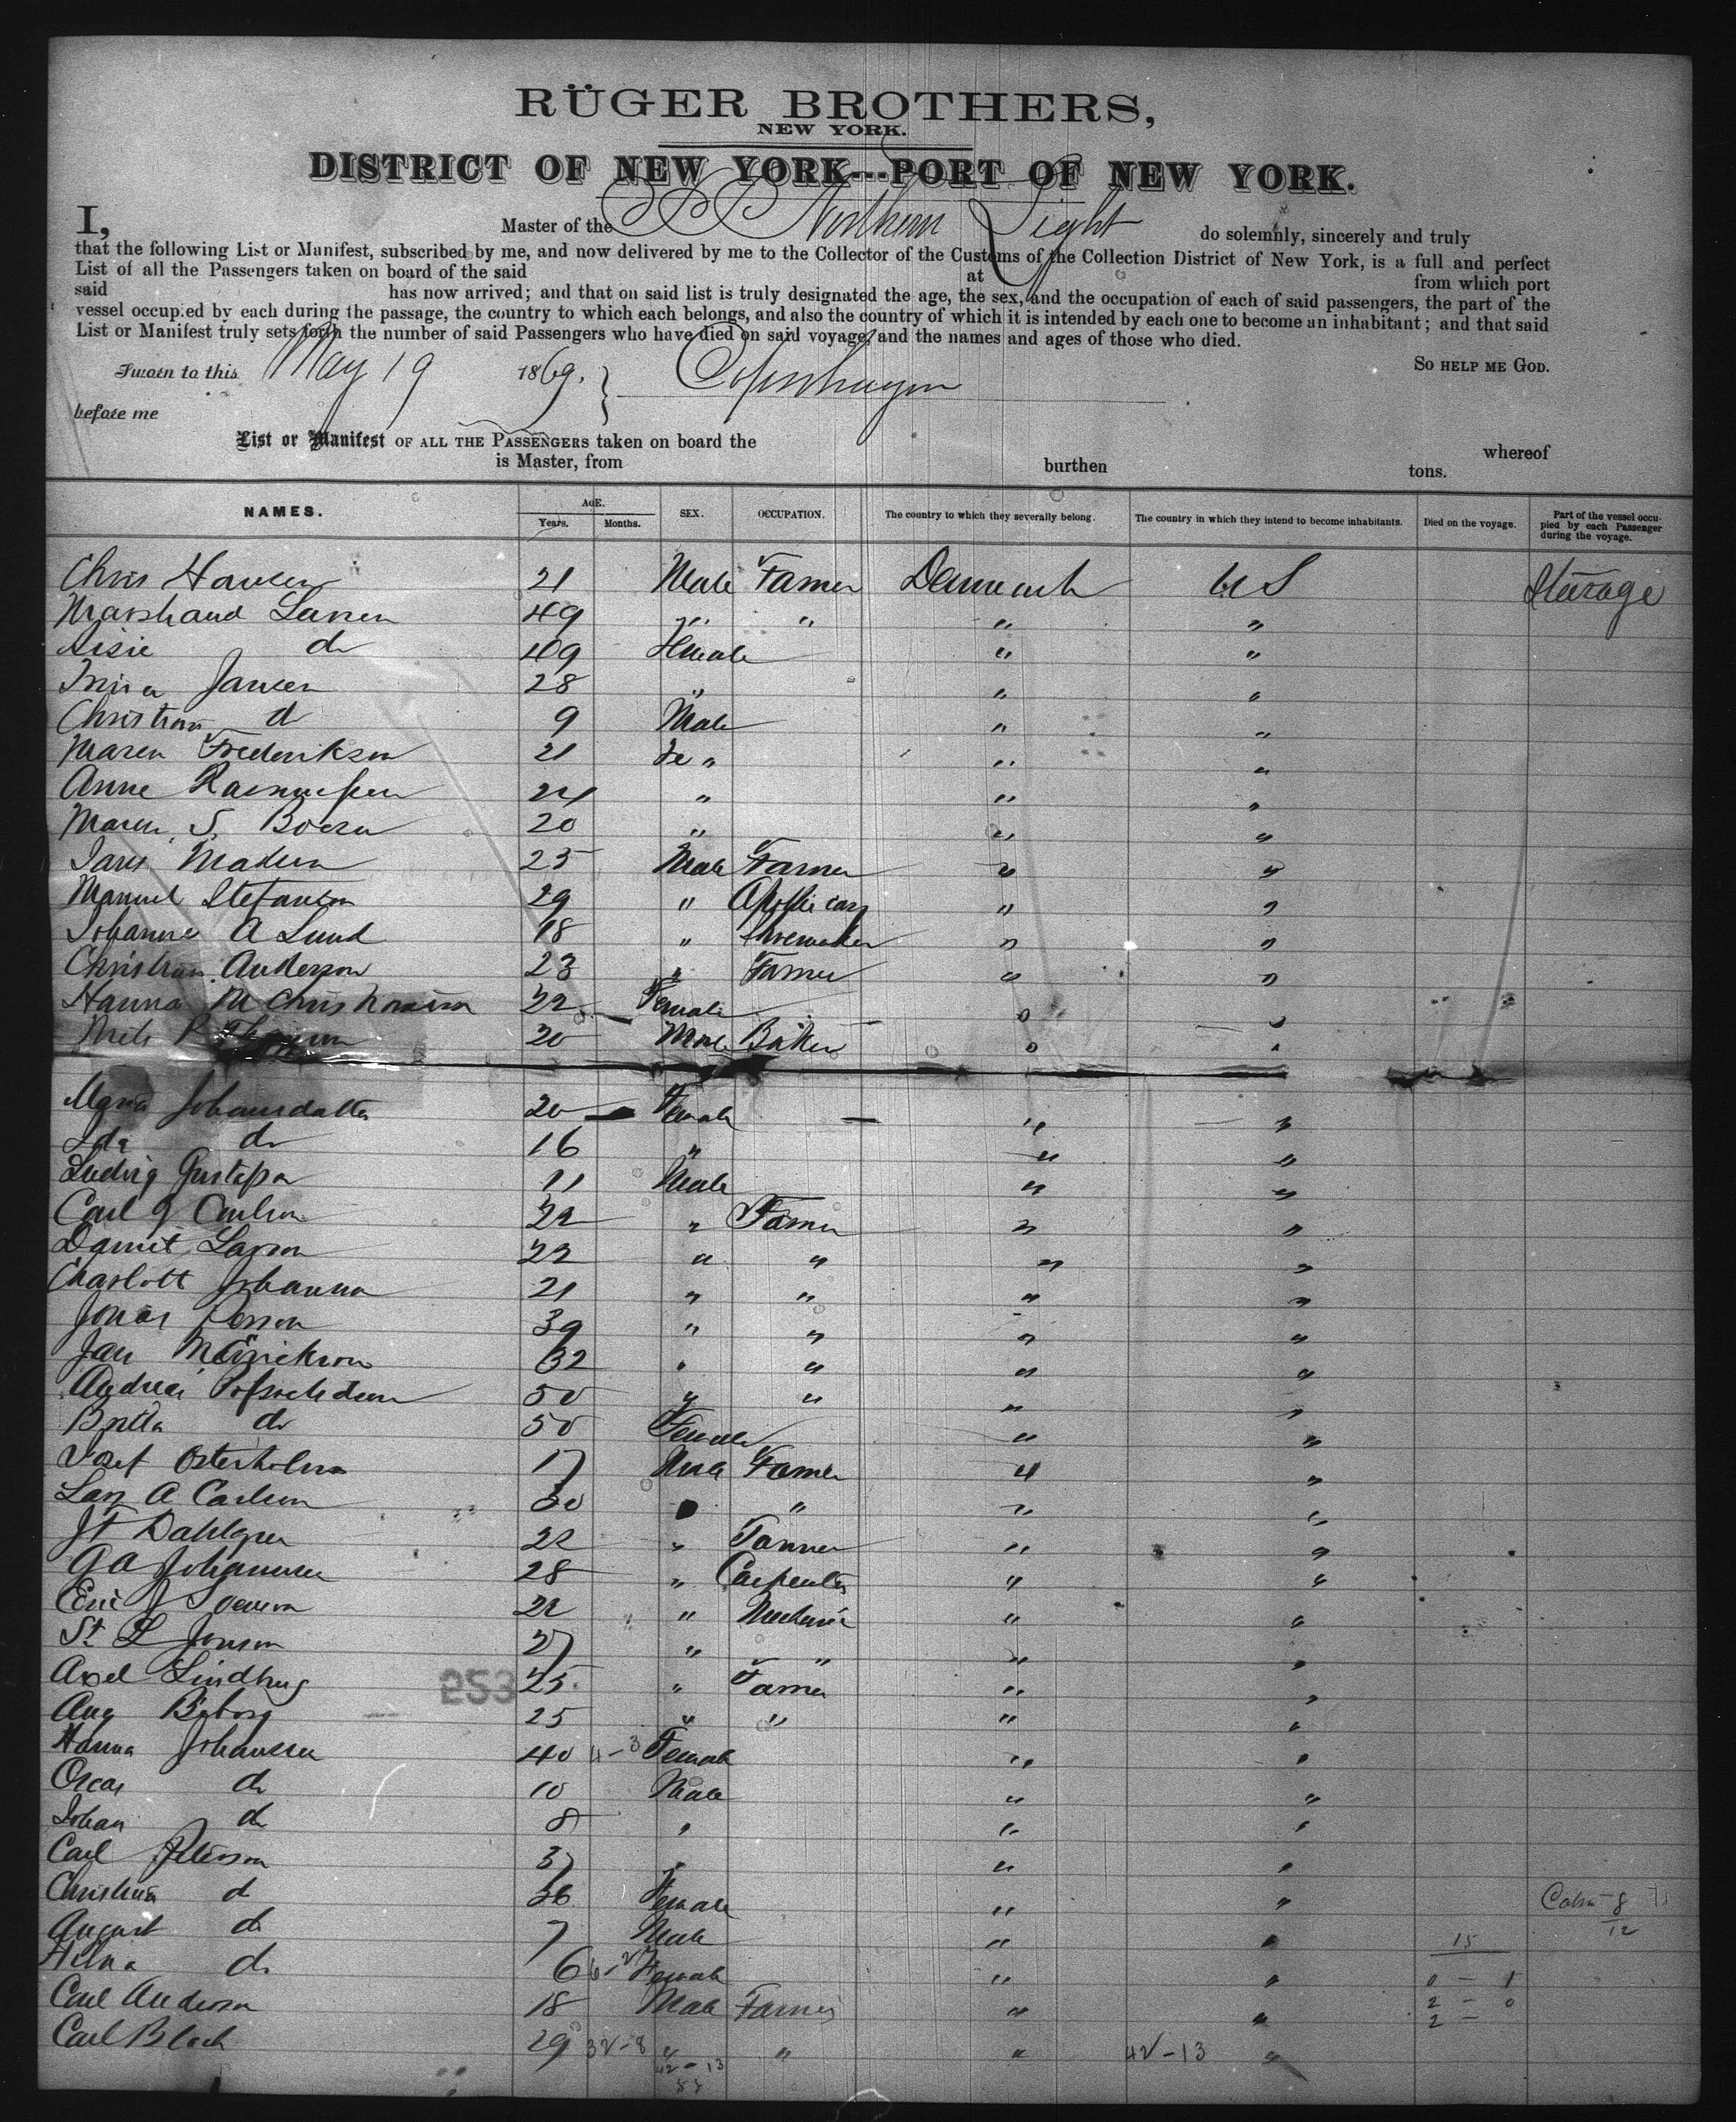 RÜGER BROTHERS,
NEW YORK.
DISTRICT OF NEW YORK---PORT OF NEW YORK.
I, Master of the SS Northern Light do solemnly, sincerely and truly
that the following List or Manifest, subscribed by me, and now delivered by me to the Collector of the Customs of the Collection District of New York, is a full and perfect
List of all the Passengers taken on board of the said at from which port
said has now arrived; and that on said list is truly designated the age, the sex, and the occupation of each of said passengers, the part of the
vessel occupied by each during the passage, the country to which each belongs, and also the country of which it is intended by each one to become an inhabitant; and that said
List or Manifest truly sets forth the number of said Passengers who have died on said voyage, and the names and ages of those who died.
So HELP ME GOD.
Sworn to this May 19 1869. } Copenhagen
before me
List or Manifest OF ALL THE PASSENGERS taken on board the whereof
is Master, from burthen tons.
NAMES. AGE. Years. Months. SEX. OCCUPATION. The country to which they severally belong. The country in which they intend to become inhabitants. Died on the voyage. Part of the vessel occupied by each Passenger during the voyage.
Chris Hansen 21 Male Farmer Denmark US Steerage
Larsen 49 " " " "
do 49 Female " "
Jansen 28 " " "
Christian d 9 Male " "
Maren Frederiksen 21 Fe " " "
Anne Rasmussen 24 " " "
Maren S. 20 " " "
Madsen 25 Male Farmer " "
Manuel Stefansen 29 " Apothecary " "
Johanne A Lund 18 " Shoemaker " "
Christian Anderson 23 " Farmer " "
Hanna M Christiansen 22 Female " "
20 Male Baker " "
Maria Johansdatter 20 Female " "
Ida do 16 " " "
Ludvig Gustafson 11 Male " "
Carl J Carlson 22 " Farmer " "
Larson 22 " " " "
Charlott Johanna 21 " " " "
Jonas Person 39 " " " "
Jan Erickson 32 " " " "
Andreas 50 " " " "
Britta do 50 Female " "
Josef Osterholm 17 Male Farmer " "
Lars A Carlson 30 " " " "
Dahlgren 22 " Tanner " "
G A Johannsen 28 " Carpenter " "
Eric J 22 " Mechanic " "
St. L Jonson 27 " " " "
Axel Lindberg 25 " Farmer " "
253
Aug 25 " " " "
Hanna Johansen 40 4-3 Female " "
Oscar do 10 Male " "
Johan do 8 " " "
Carl Peterson 37 " " "
Christina d 36 Female " " 8
August do 7 Male " " 12
do 6 6-2 Female " " 15
Carl Anderson 18 Male Farmer " "
Carl Block 29 32-8 " " " 42-13 "
42-13